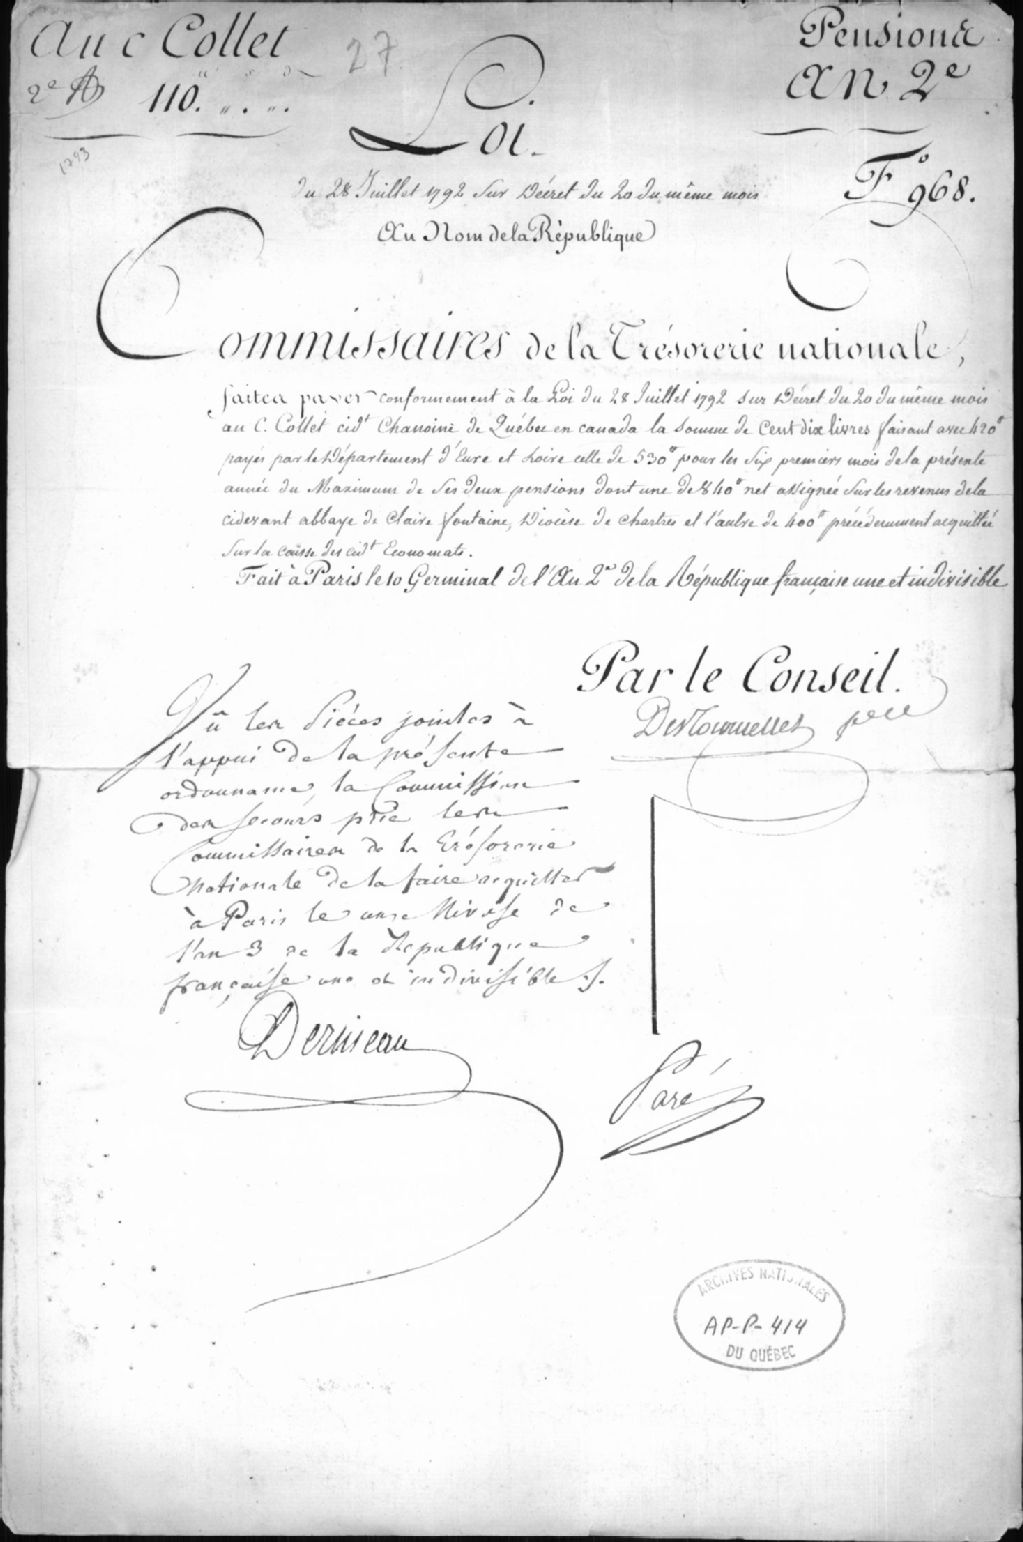 Au c Collet
27
Pensions
2e
110.
An 2e
1793
Loi
Fo 968.
du 28 Juillet 1792 sur Décret du 20 du même mois
Au Nom de la République
Commissaires de la Trésorerie nationale,
faites payer conformement à la Loi du 28 Juillet 1792 sur Décret du 20 du même mois
au C. Collet cidt Chanoine de Québec en canada la somme de Cent dix livres faisant avec 420tt
payés par le Département d'Eure et Loire celle de 530tt pour les Six premiers mois de la présente
année du Maximum de Ses deux pensions dont une de 840tt net assignée sur les revenus de la
cidevant abbaye de Claire fontaine, Diocèse de Chartres et l'autre de 400tt précédemment acquittée
Sur la caisse des cidt Economats.
Fait à Paris le 10 Germinal de l'An 2e de la République française une et indivisible
Par le Conseil.
DesTournelles
Vû les Piéces jointes à
l'appui de la présente
ordonnance, la Commission
des secours prie les
Commissaires de la Trésorerie
Nationale de la faire acquitter
à Paris le onze Nivôse de
l'an 3 de la République
française une et indivisible ./.
Derniseau
Paré
ARCHIVES NATIONALES
AP-P-414
DU QUÉBEC